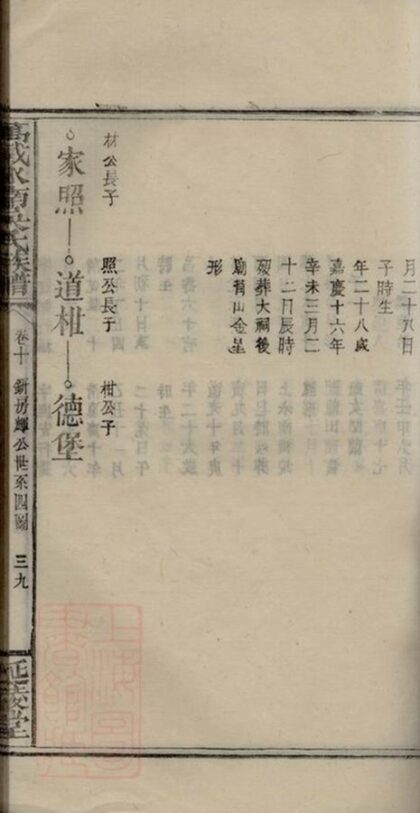 月二十八日
子時生
年二十八歲
嘉慶十六年
辛未三月二
十二日辰時
歿葬大祠後
廟背山金星
形
材公長子 照公長子 柑公子
家照 道柑 德堡
族譜 卷十 新房輝公世系四圖 三九 延陵堂
上海圖書館藏